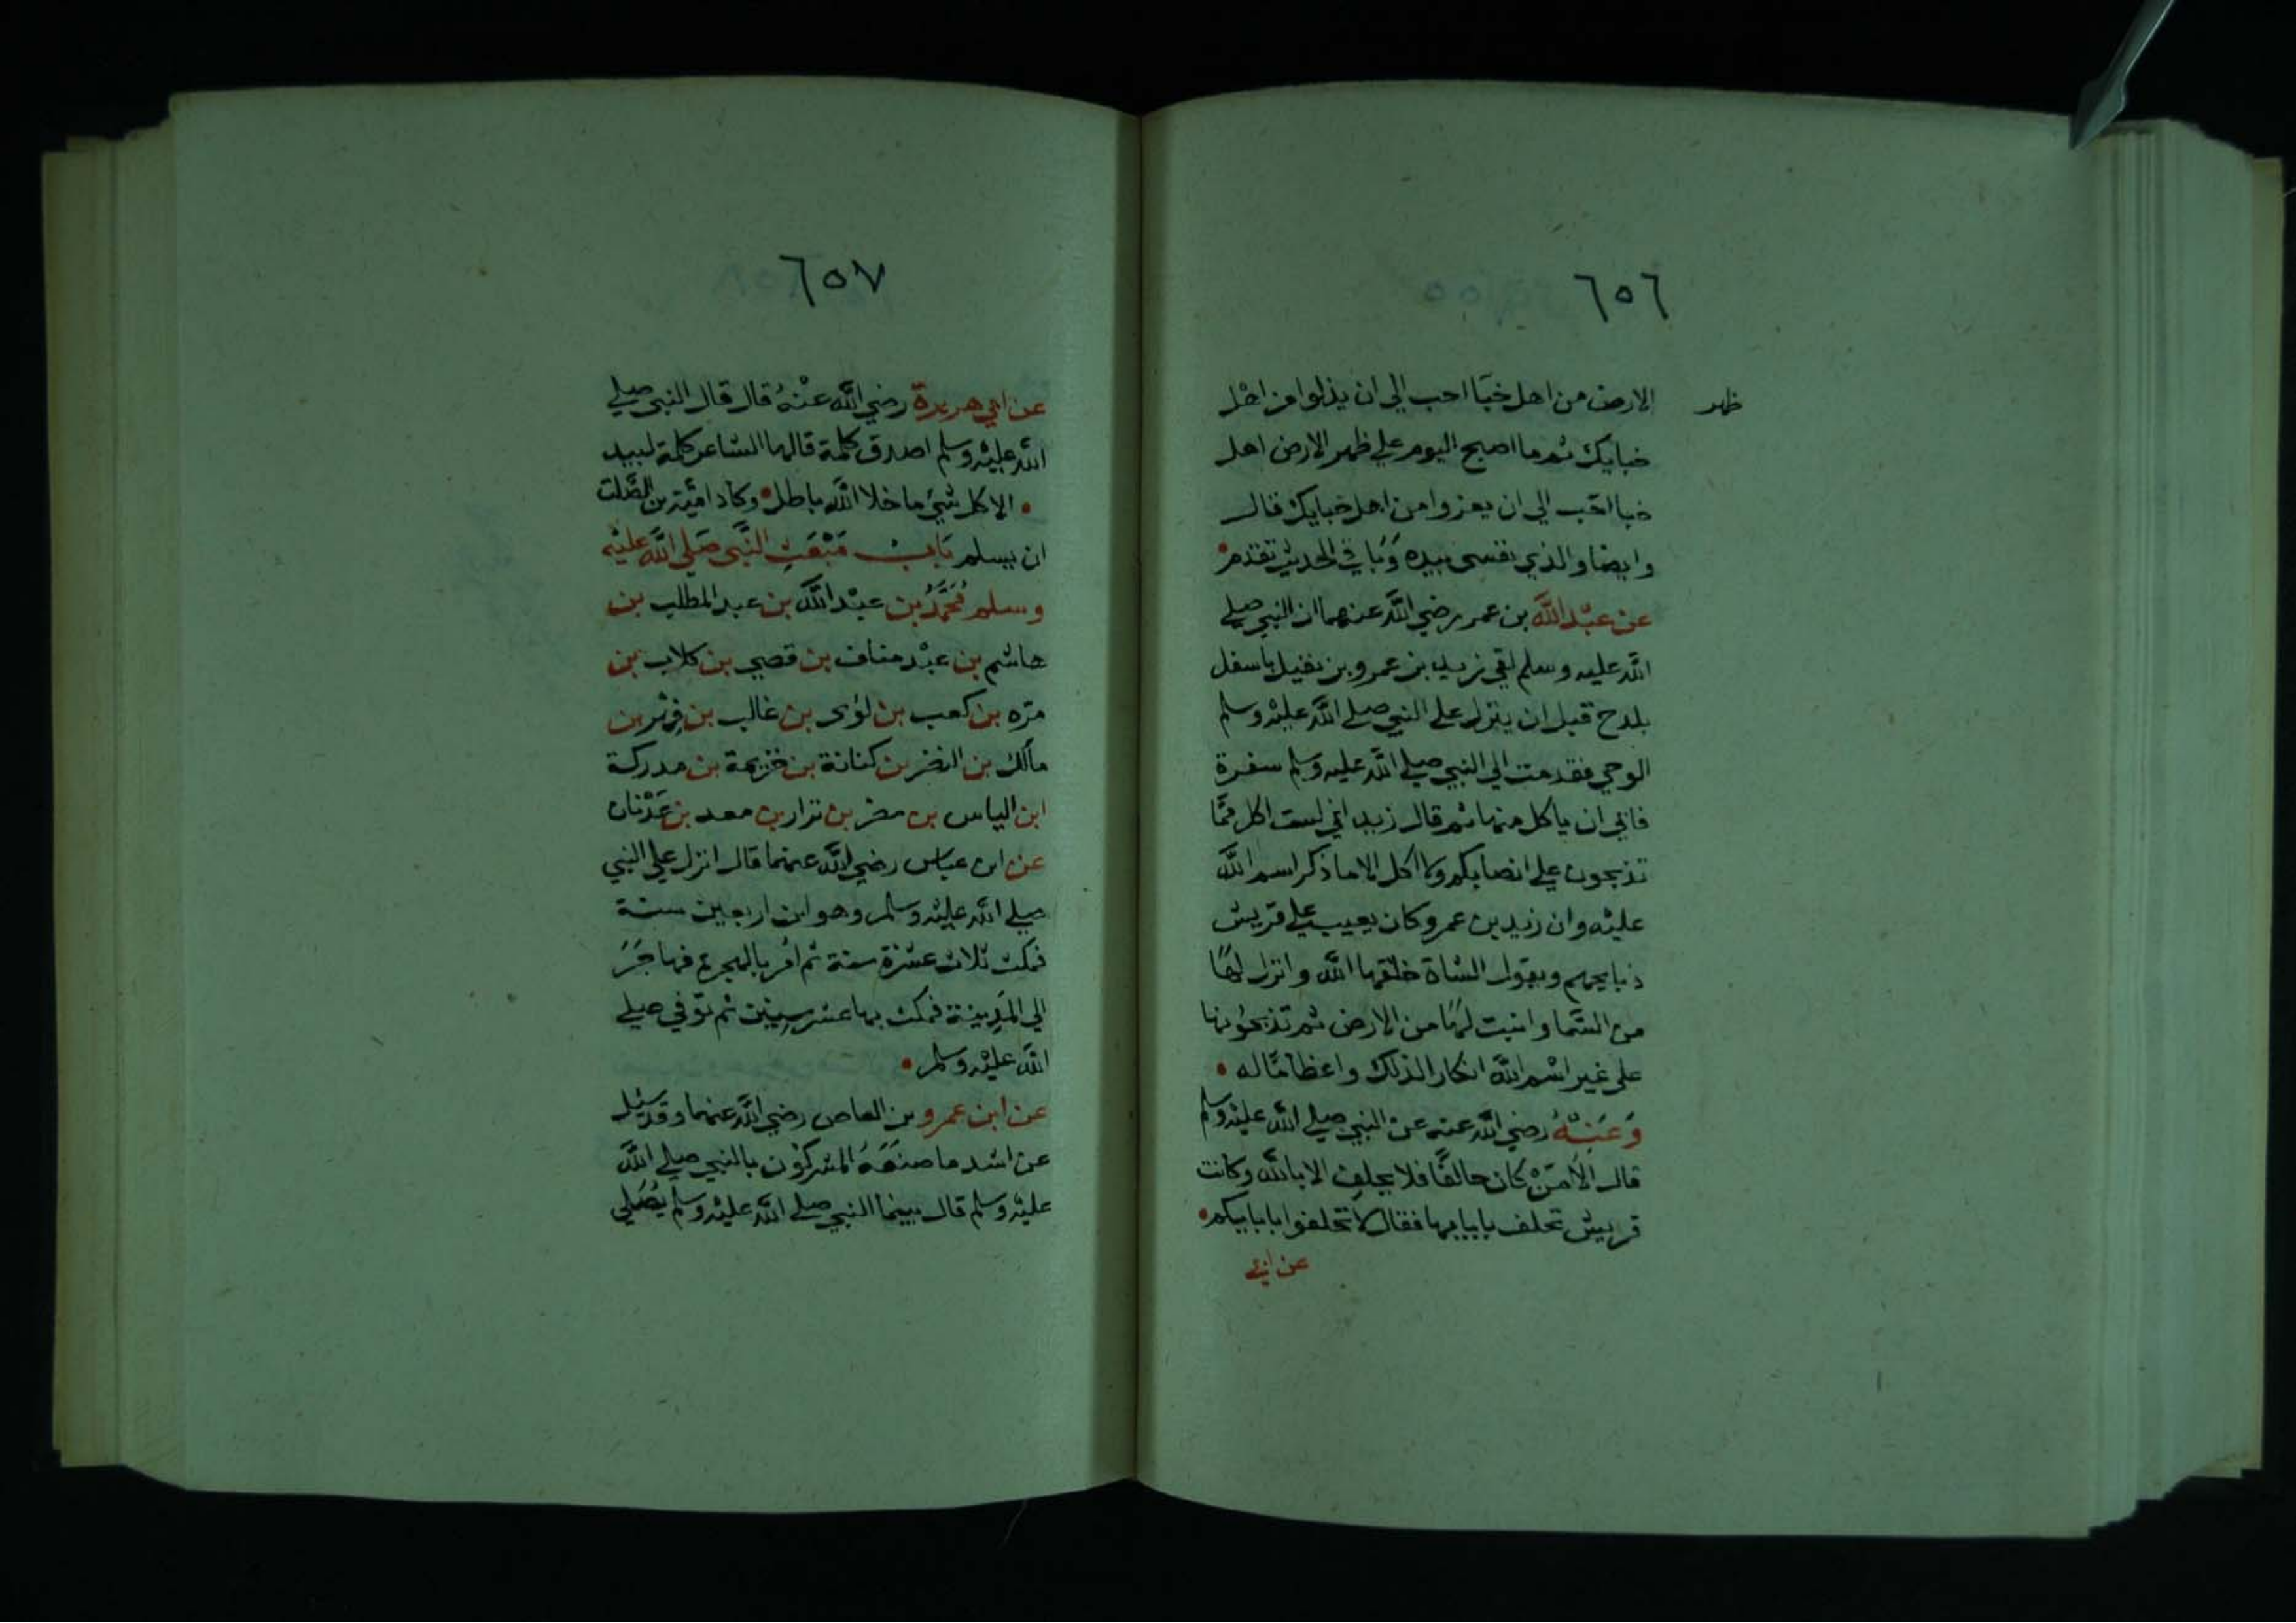 ٦٥٦
ظهر
الارض من اهل خبَا احب الى ان يذلوا من اهل
خبايك ثم ما اصبح اليوم علي ظهر الارض اهل
خبا احَب الي ان يعزوا من اهل خبايك قال
وايضا والذي نفسي بيده وَبَاقي الحديث تقدم
عن عبْد اللَّه بن عمر رضي اللَّه عنهما ان النبي صلي
اللَّه عليه وسلم لقي زيد بن عمرو بن نفيل باسفل
بلدح قبل ان ينزل علي النبي صلي اللَّه عليْه وسلم
الوحي فقدمت الي النبي صلي اللَّه عليه وسلم سفرة
فابي ان ياكل منها ثم قال زيد اني لست اكل ممَّا
تذبحون علي انصابكم ولا اكل الا ما ذكر اسم اللَّه
عليْه وان زيد بن عمرو كان يعيب علي قريش
ذبايحهم ويقول الشاة خلقها اللَّه وانزل لهَا
من السَّما وانبت لهَا من الارض ثم تذبحُونها
علي غير اسْم اللَّه انكارا لذلك واعظامًا له
وَعَنْهُ رضي اللَّه عنه عن النبي صلي اللَّه عليْه وسلم
قال الَا مَنْ كان حالفًا فلا يحلف الا باللَّه وكانت
قريش تحلف بابايها فقال لا تحلفوا بابايكم
عن ابي
٦٥٧
عن ابي هريرة رضي اللَّه عنْهُ قال قال النبي صلي
اللَّه عليْه وسلم اصدق كلمة قالها الشاعر كلمة لبيد
الا كل شيَ ما خلا اللَّه باطل وكاد اميَّة بن الصَّلت
ان يسلم بَاب مَبْعَث النَّبي صَلي اللَّه عليْه
وسلم مُحَمَّدُ بن عبْد اللَّه بن عبد المطلب بن
هاشم بن عبْد مناف بن قصي بن كلاب بن
مرّه بن كعب بن لؤى بن غالب بن فِهْر بن
مالك بن النضر بن كنانة بن خزيمة بن مدركة
ابن الياس بن مضر بن نزار بن معد بن عَدْنان
عن ابن عباس رضي اللَّه عنهما قال انزل علي النبي
صلي اللَّه عليْه وسلم وهو ابن اربعين سنة
فمكث ثلاث عشرة سنة ثم امُر بالهجرة فهاجَرَ
الي المَدِينة فمكث بها عشر سِنِين ثم تُوّفي صلي
اللَّه عليْه وسلم
عن ابن عمرو بن العاص رضي اللَّه عنهما وقد سُئِل
عن اشد ما صنعَهُ المشركوُن بالنبي صلي اللَّه
عليْه وسلم قال بينما النبي صلي اللَّه عليْه وسلم يُصَلي